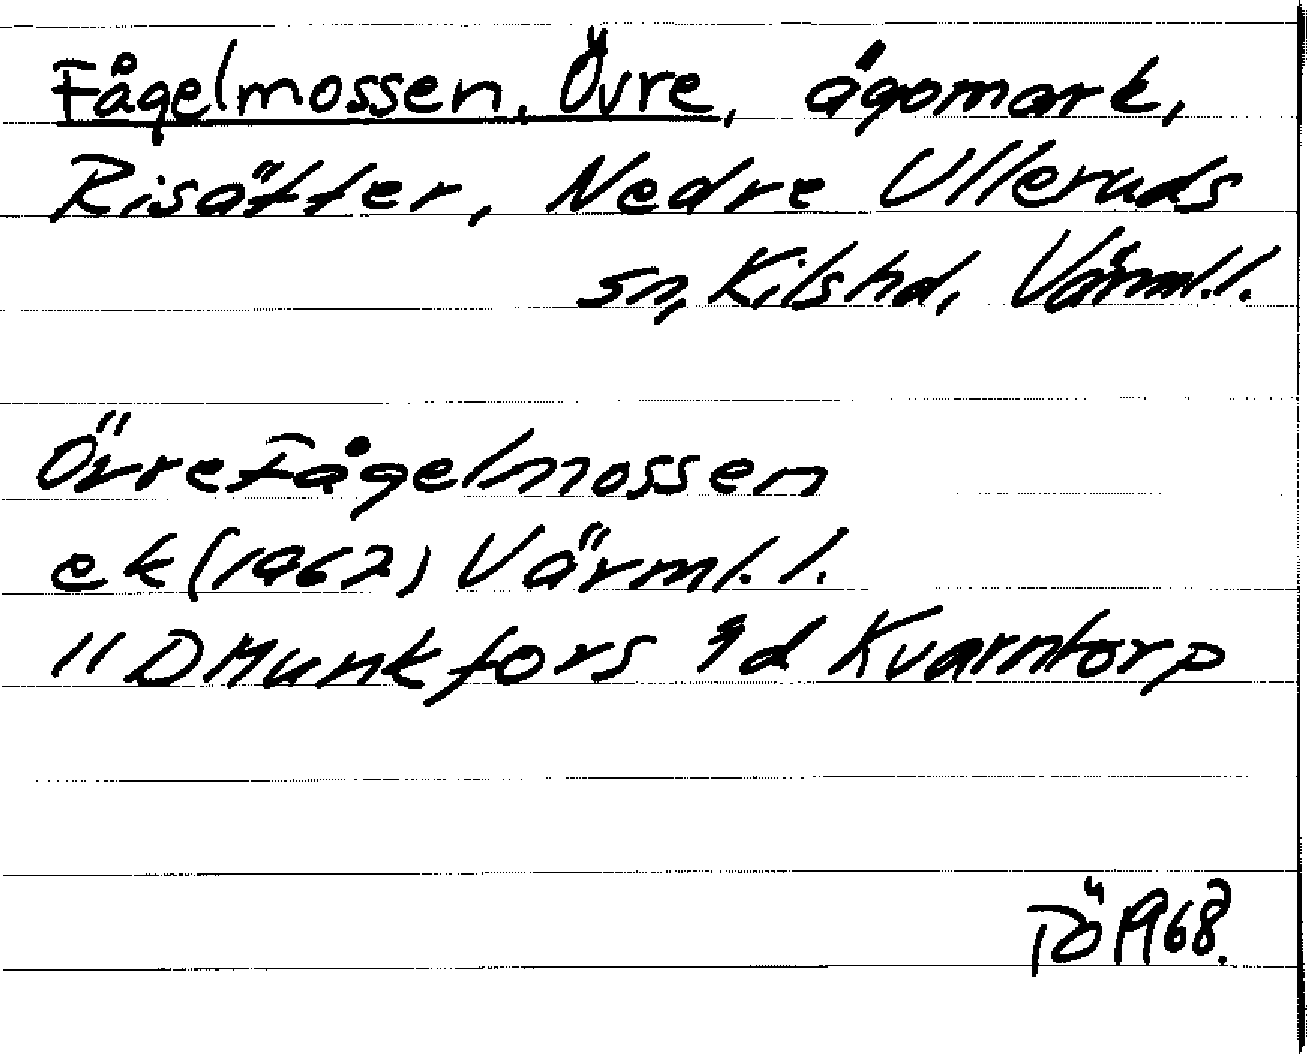 Fågelmossen, Övre, ägomark,
Risäter, Nedre Ulleruds
sn, Kils hd, Värml.l.
Övre Fågelmossen
ek (1962) Värml.l.
" D Munkfors 9d Kvarntorp
TÖ 1968.